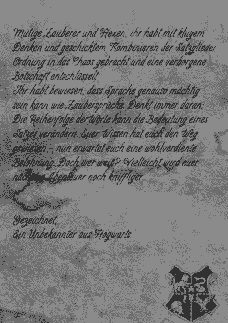 Mutige Zauberer und Hexen, ihr habt mit klugem
Denken und geschicktem Kombinieren der Satzglieder
Ordnung in das Chaos gebracht und eine verborgene
Botschaft entschlüsselt.
Ihr habt bewiesen, dass Sprache genauso mächtig
sein kann wie Zaubersprüche. Denkt immer daran:
Die Reihenfolge der Worte kann die Bedeutung eines
Satzes verändern. Euer Wissen hat euch den Weg
gewiesen – nun erwartet euch eine wohlverdiente
Belohnung. Doch wer weiß? Vielleicht wird euer
nächstes Abenteuer noch kniffliger
Gezeichnet,
Ein Unbekannter aus Hogwarts